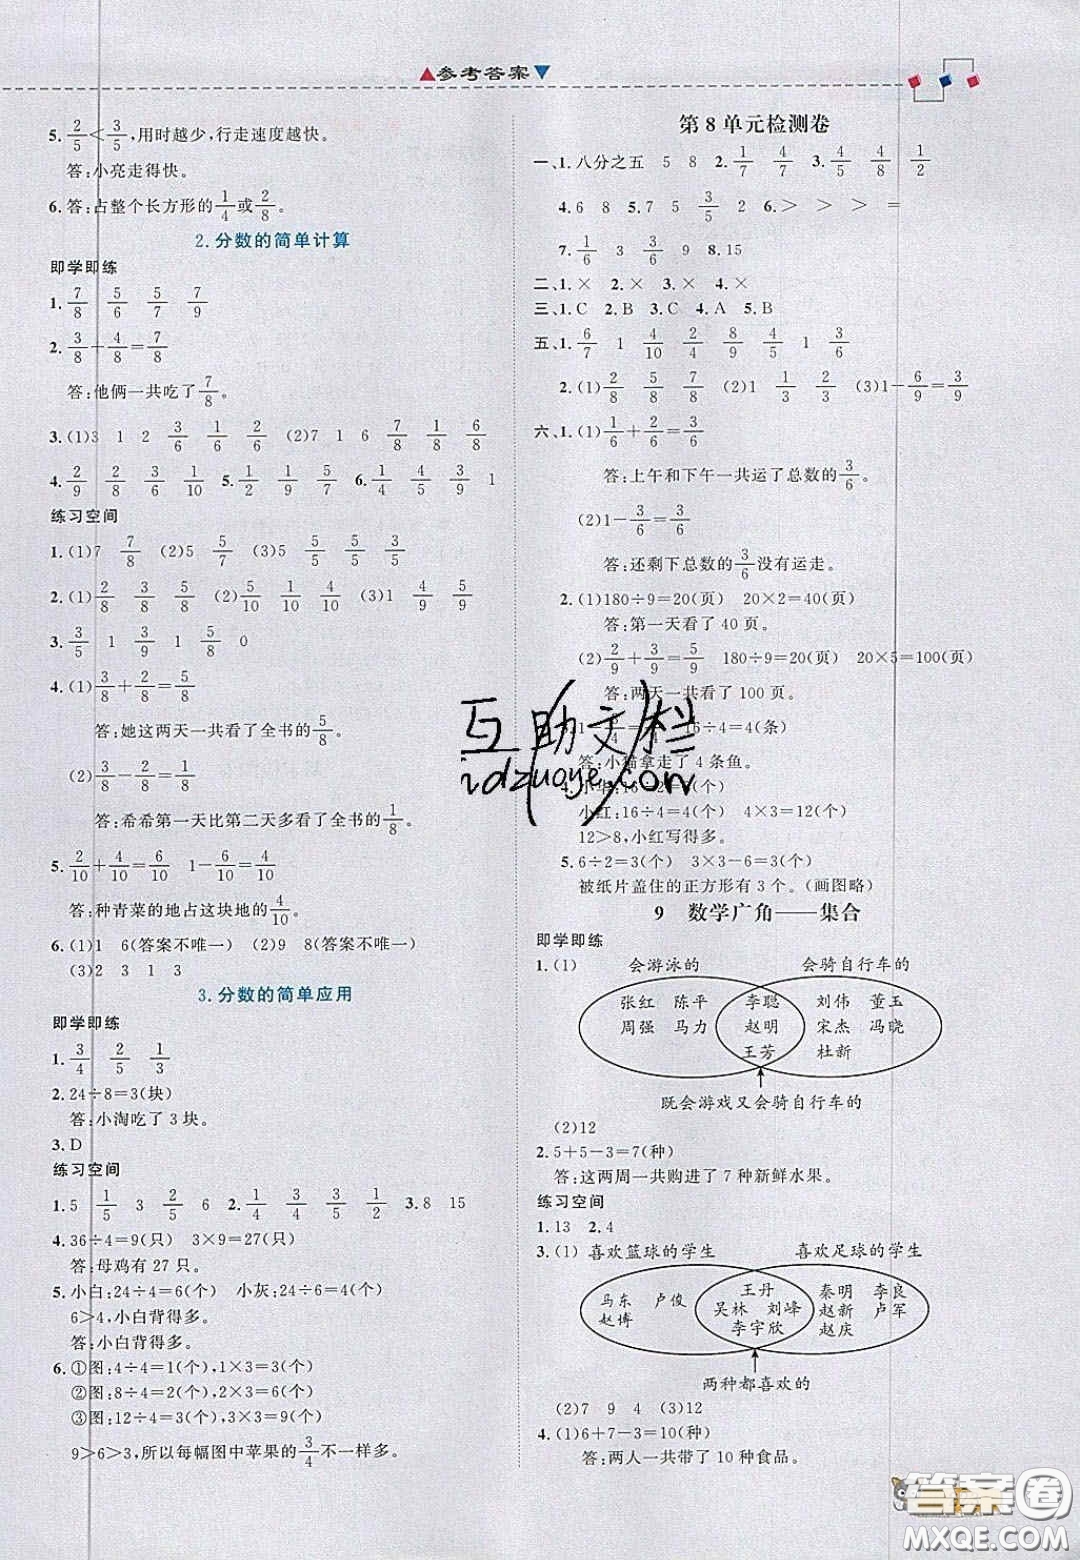 参考答案
5. 2/5＜3/5,用时越少,行走速度越快。
答:小亮走得快。
6. 答:占整个长方形的1/4或2/8。
2.分数的简单计算
即学即练
1. 7/8 5/6 5/7 7/9
2. 3/8+4/8=7/8
答:他俩一共吃了7/8。
3. (1)3 1 2 3/6 1/6 2/6 (2)7 1 6 7/8 1/8 6/8
4. 2/9 2/8 3/6 1/10 5. 1/2 1/9 5/7 6. 1/4 3/6 7/9 1
练习空间
1. (1)7 7/8 (2)5 5/7 (3)5 5/5 5/5 5/5
2. (1)2/8 3/8 5/8 (2)5/10 1/10 4/10 (3)1 4/9 5/9
3. 3/5 1 3/9 1 5/8 0
4. (1)3/8+2/8=5/8
答:她这两天一共看了全书的5/8。
(2)3/8-2/8=1/8
答:希希第一天比第二天多看了全书的1/8。
5. 2/10+4/10=6/10 1-6/10=4/10
答:种青菜的地占这块地的4/10。
6. (1)1 6(答案不唯一) (2)9 8(答案不唯一)
(3)2 3 1 3
3.分数的简单应用
即学即练
1. 3/4 2/5 1/3
2. 24÷8=3(块)
答:小淘吃了3块。
3. D
练习空间
1. 5 1/5 3 2/5 6 2. 1/4 3/4 1/4 3/4 3. 8 15
4. 36÷4=9(只) 3×9=27(只)
答:母鸡有27只。
5. 小白:24÷4=6(个) 小灰:24÷6=4(个)
6＞4,小白背得多。
答:小白背得多。
6. ①图:4÷4=1(个),1×3=3(个)
②图:8÷4=2(个),2×3=6(个)
③图:12÷4=3(个),3×3=9(个)
9＞6＞3,所以每幅图中苹果的3/4不一样多。
第8单元检测卷
一、1. 八分之五 5 8 2. 1/7 4/7 3. 4/5 4/8 1/2
4. 6 8 5. 7 5 3/5 2 6. ＞ ＞ ＞ =
7. 1/6 3 3/6 9 8. 15
二、1. × 2. × 3. × 4. ×
三、1. C 2. B 3. C 4. A 5. B
五、1. 6/7 1 4/10 2/4 8/9 4/5 1 3/6
2. (1)2/8 5/8 7/8 (2)1 1/3 2/3 (3)1-6/9=3/9
六、1. (1)1/6+2/6=3/6
答:上午和下午一共运了总数的3/6。
(2)1-3/6=3/6
答:还剩下总数的3/6没有运走。
2. (1)180÷9=20(页) 20×2=40(页)
答:第一天看了40页。
(2)2/9+3/9=5/9 180÷9=20(页) 20×5=100(页)
答:两天一共看了100页。
16÷4=4(条)
答:小猫拿走了4条鱼。
小红:16÷4=4(个) 4×3=12(个)
12＞8,小红写得多。
5. 6÷2=3(个) 3×3-6=3(个)
被纸片盖住的正方形有3个。(画图略)
9 数学广角——集合
即学即练
1. (1) 会游泳的 会骑自行车的
张红 陈平 李聪 刘伟 董玉
周强 马力 赵明 宋杰 冯晓
王芳 杜新
既会游戏又会骑自行车的
(2)12
2. 5+5-3=7(种)
答:这两周一共购进了7种新鲜水果。
练习空间
1. 13 2. 4
3. (1) 喜欢篮球的学生 喜欢足球的学生
马东 卢俊 王丹 秦明 李良
赵博 吴林 刘峰 赵新 卢军
李宇欣 赵庆
两种都喜欢的
(2)7 9 4 (3)12
4. (1)6+7-3=10(种)
答:两人一共带了10种食品。
互助文栏
idzuoye.com
答案圈
MXQE.COM